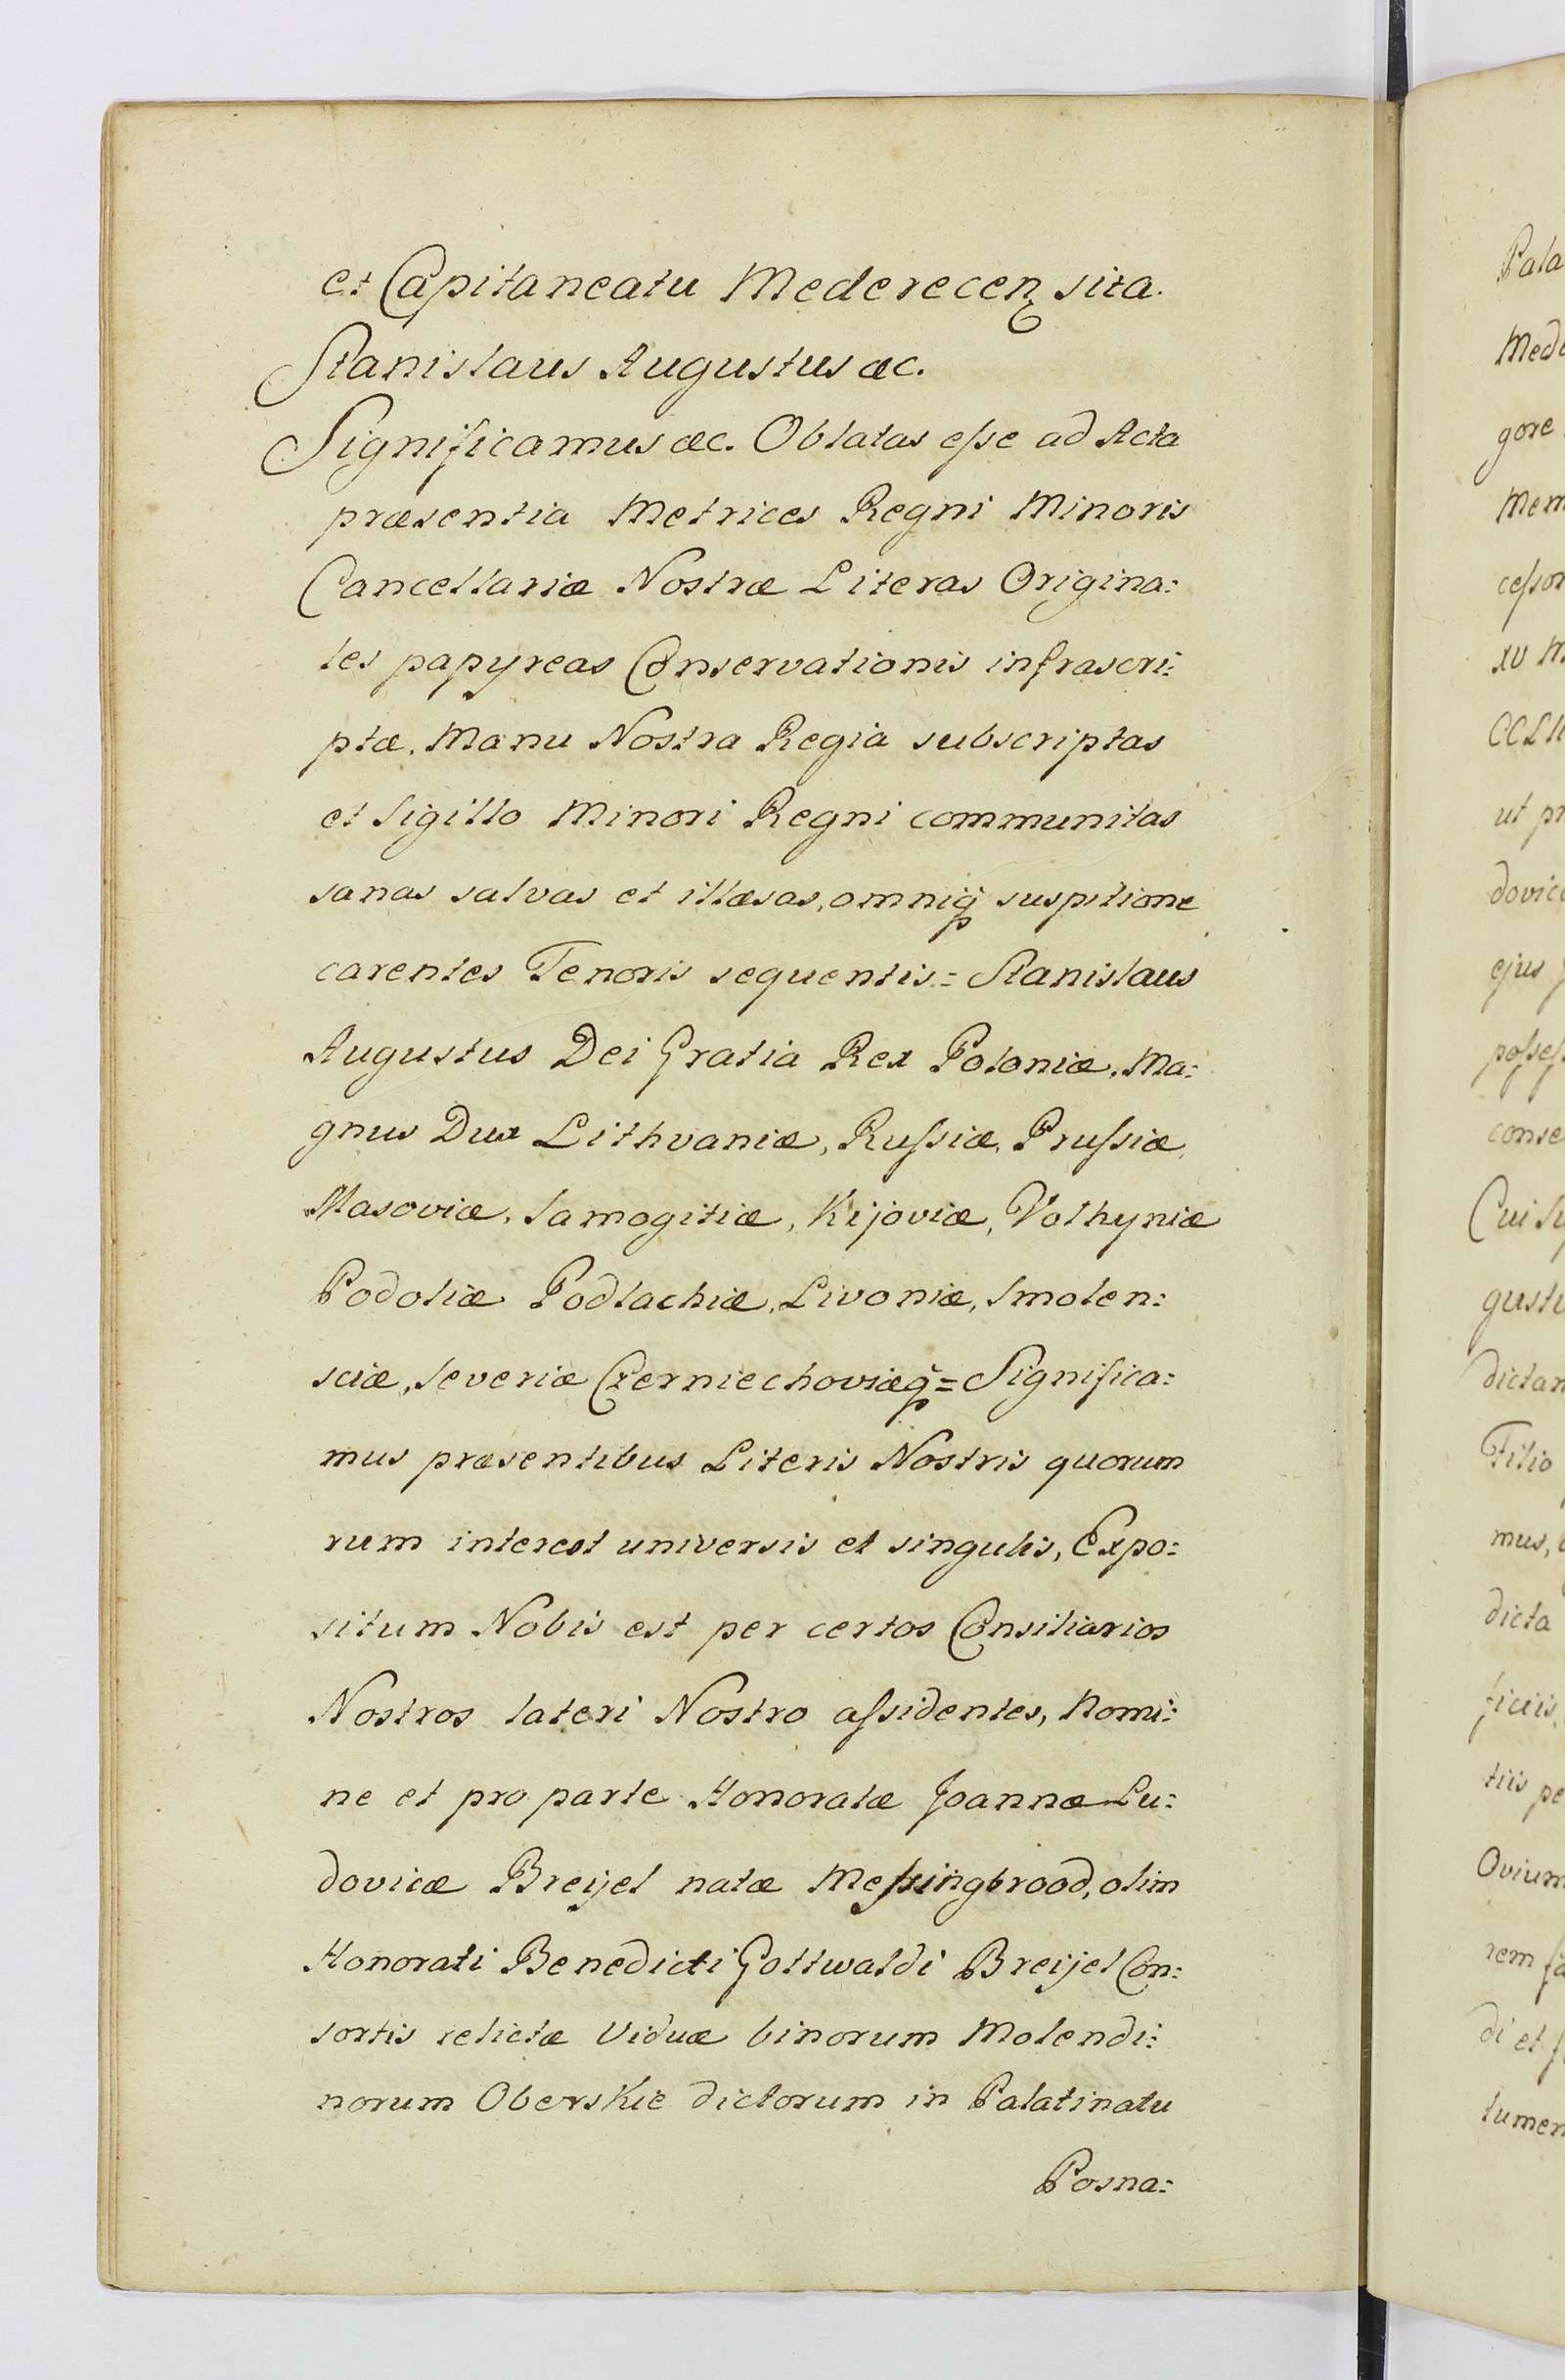 et Capitaneatu Mederecen sita.
Stanislaus Augustus æc.
Significamus æc. Oblatas eſse ad Acta
præsentia Metrices Regni Minoris
Cancellariæ Nostræ Literas Origina:
les papyreas Conservationis infrascri:
ptæ, Manu Nostra Regia subscriptas
et Sigillo Minori Regni communitas
sanas salvas et illæsas, omniq̀ suspitione
carentes Tenoris sequentis = Stanislaus
Augustus Dei Gratia Rex Poloniæ, Ma:
gnus Dux Lithvaniæ, Ruſsiæ, Pruſsiæ,
Masoviæ, Samogitiæ, Kijoviæ, Volhyniæ
Podoliæ Podlachiæ, Livoniæ, Smolen:
sciæ, Severiæ Czerniechoviæq̀ = Significa:
mus præsentibus Literis Nostris quorum
rum interest universis et singulis, Expo:
situm Nobis est per certos Consiliarios
Nostros lateri Nostro aſsidentes, Nomi:
ne et pro parte Honoratæ Joannæ Lu:
dovicæ Breijel natæ Meſsingbrood, olim
Honorati Benedicti Gottwaldi Breijel Con:
sortis relictæ Viduæ binorum Molendi:
norum Oberskie dictorum in Palatinatu
Posna:
Pala
Mede
gore
Mem
ceſsor
XV M
ut pr
dovicæ
ejus
poſseſ
conse
Cui Su
gustu
dictam
Filio
mus,
dicta
ficiis,
tiis pe
Ovium
rem fa
di et f
lumen